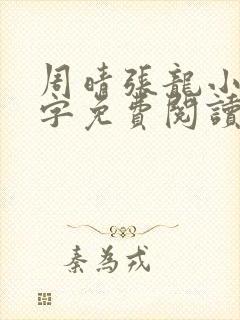 周晴張龍小
字免費閱讀
秦為戎